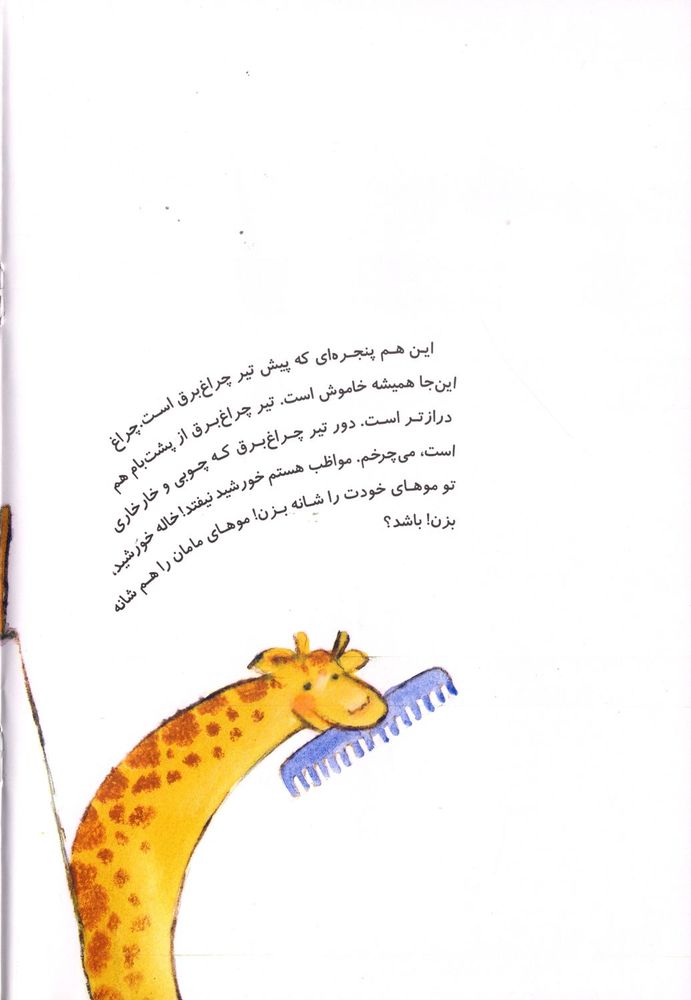 این هم پنجره‌ای که پیش تیر چراغ‌برق است.چراغ
این‌جا همیشه خاموش است. تیر چراغ‌برق از پشت‌بام هم
درازتر است. دور تیر چراغ‌برق که چوبی و خارخاری
است، می‌چرخم. مواظب هستم خورشید نیفتد!خاله خورشید،
تو موهای خودت را شانه بزن! موهای مامان را هم شانه
بزن! باشد؟